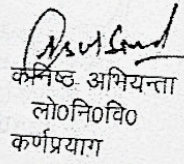 कनिष्ठ अभियन्ता
लो०नि०वि०
कर्णप्रयाग